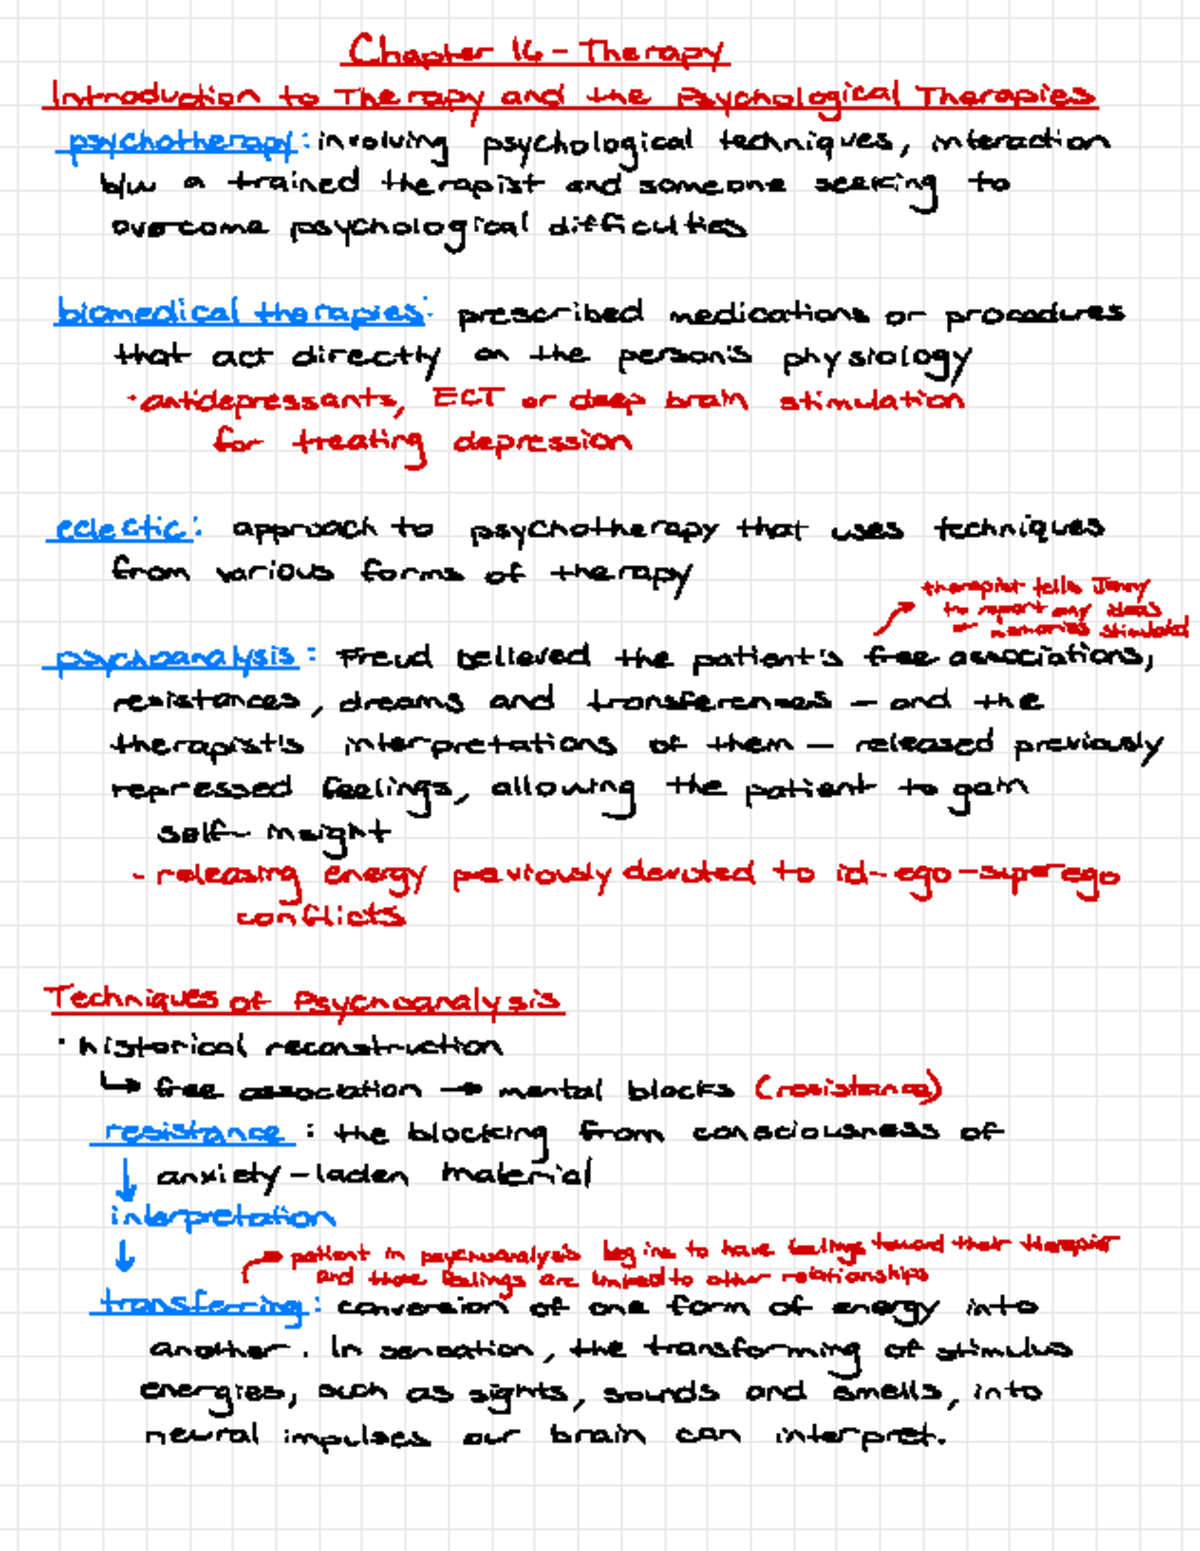 Chapter 16 - Therapy
Introduction to Therapy and the Psychological Therapies
psychotherapy: involving psychological techniques, interaction
b/w a trained therapist and someone seeking to
overcome psychological difficulties
biomedical therapies: prescribed medications or procedures
that act directly on the person's physiology
· antidepressants, ECT or deep brain stimulation
for treating depression
eclectic: approach to psychotherapy that uses techniques
from various forms of therapy
therapist tells Jenny
to report any ideas
or memories stimulated
psychoanalysis: Freud believed the patient's free associations,
resistances, dreams and transferences – and the
therapist's interpretations of them – released previously
repressed feelings, allowing the patient to gain
self-insight
- releasing energy previously devoted to id-ego-superego
conflicts
Techniques of Psychoanalysis
· historical reconstruction
↳ free association → mental blocks (resistance)
resistance: the blocking from consciousness of
↓ anxiety-laden material
interpretation
↓
→ patient in psychoanalysis begins to have feelings toward their therapist
and those feelings are linked to other relationships
transferring: conversion of one form of energy into
another. In sensation, the transforming of stimulus
energies, such as sights, sounds and smells, into
neural impulses our brain can interpret.